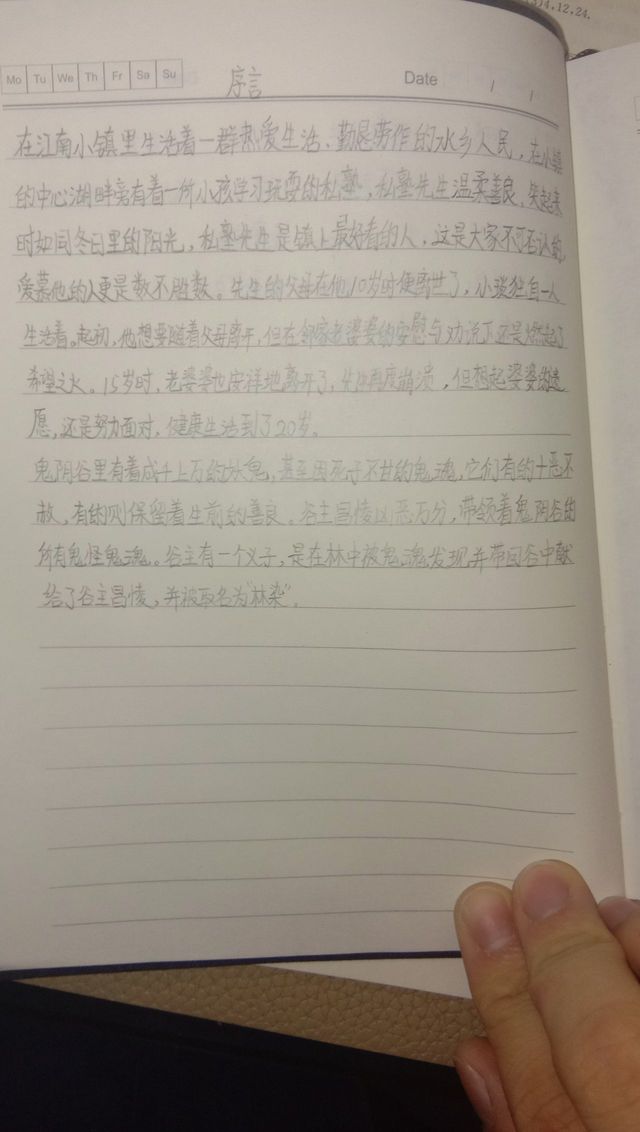 4.12.24.
Mo Tu We Th Fr Sa Su
序言
Date / /
在江南小镇里生活着一群热爱生活、勤恳劳作的水乡人民，在小镇
的中心湖畔旁有着一所小孩学习玩耍的私塾，私塾先生温柔善良，笑起来
时如同冬日里的阳光，私塾先生是镇上最好看的人，这是大家不可否认的，
爱慕他的人更是数不胜数。先生的父母在他10岁时便离世了，小孩独自一人
生活着。起初，他想要随着父母离开，但在邻家老婆婆的安慰与劝说下还是燃起了
希望之火。15岁时，老婆婆也安祥地离开了，先生再度崩溃，但想起婆婆的遗
愿，还是努力面对，健康生活到了20岁。
鬼阴谷里有着成千上万的妖鬼，甚至因死于不甘的鬼魂，它们有的十恶不
赦，有的则保留着生前的善良。谷主昌恷凶恶万分，带领着鬼阴谷的
所有鬼怪鬼魂。谷主有一个义子，是在林中被鬼魂发现并带回谷中献
给了谷主昌恷，并被取名为“林染”。